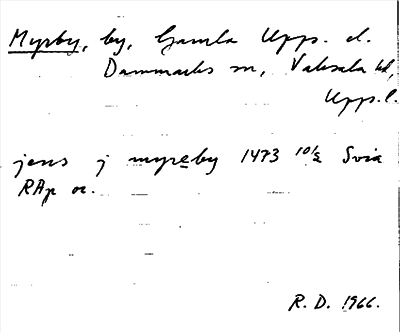 Myrby, by, Gamla Upps. d.
Danmarks sn, Vaksala hd,
Upps. l.
jens j myreby 1473 10/2 Svia
RAp or.
R. D. 1966.